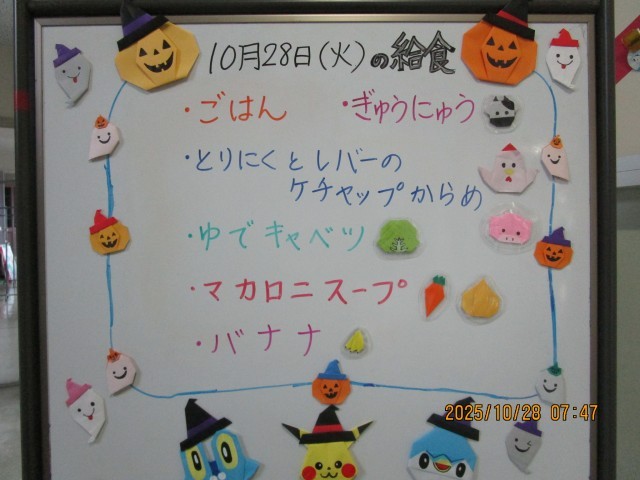 10月28日(火)の給食
・ごはん ・ぎゅうにゅう
・とりにくとレバーの
ケチャップからめ
・ゆでキャベツ
・マカロニスープ
・バナナ
2025/10/28 07:47